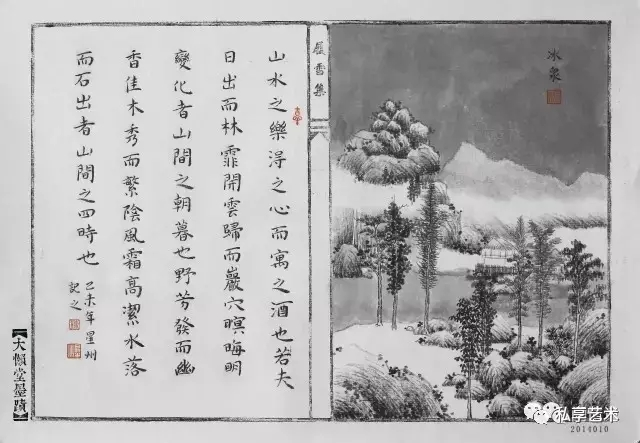 冰
雪集
山水之樂淂之心而寓之酒也若夫
日出而林霏開雲歸而巖穴暝晦明
變化者山間之朝暮也野芳發而幽
香佳木秀而繁陰風霜高潔水落
而石出者山間之四時也
己未年星州
記之
【大懶堂墨蹟】
弘享艺术
2014010